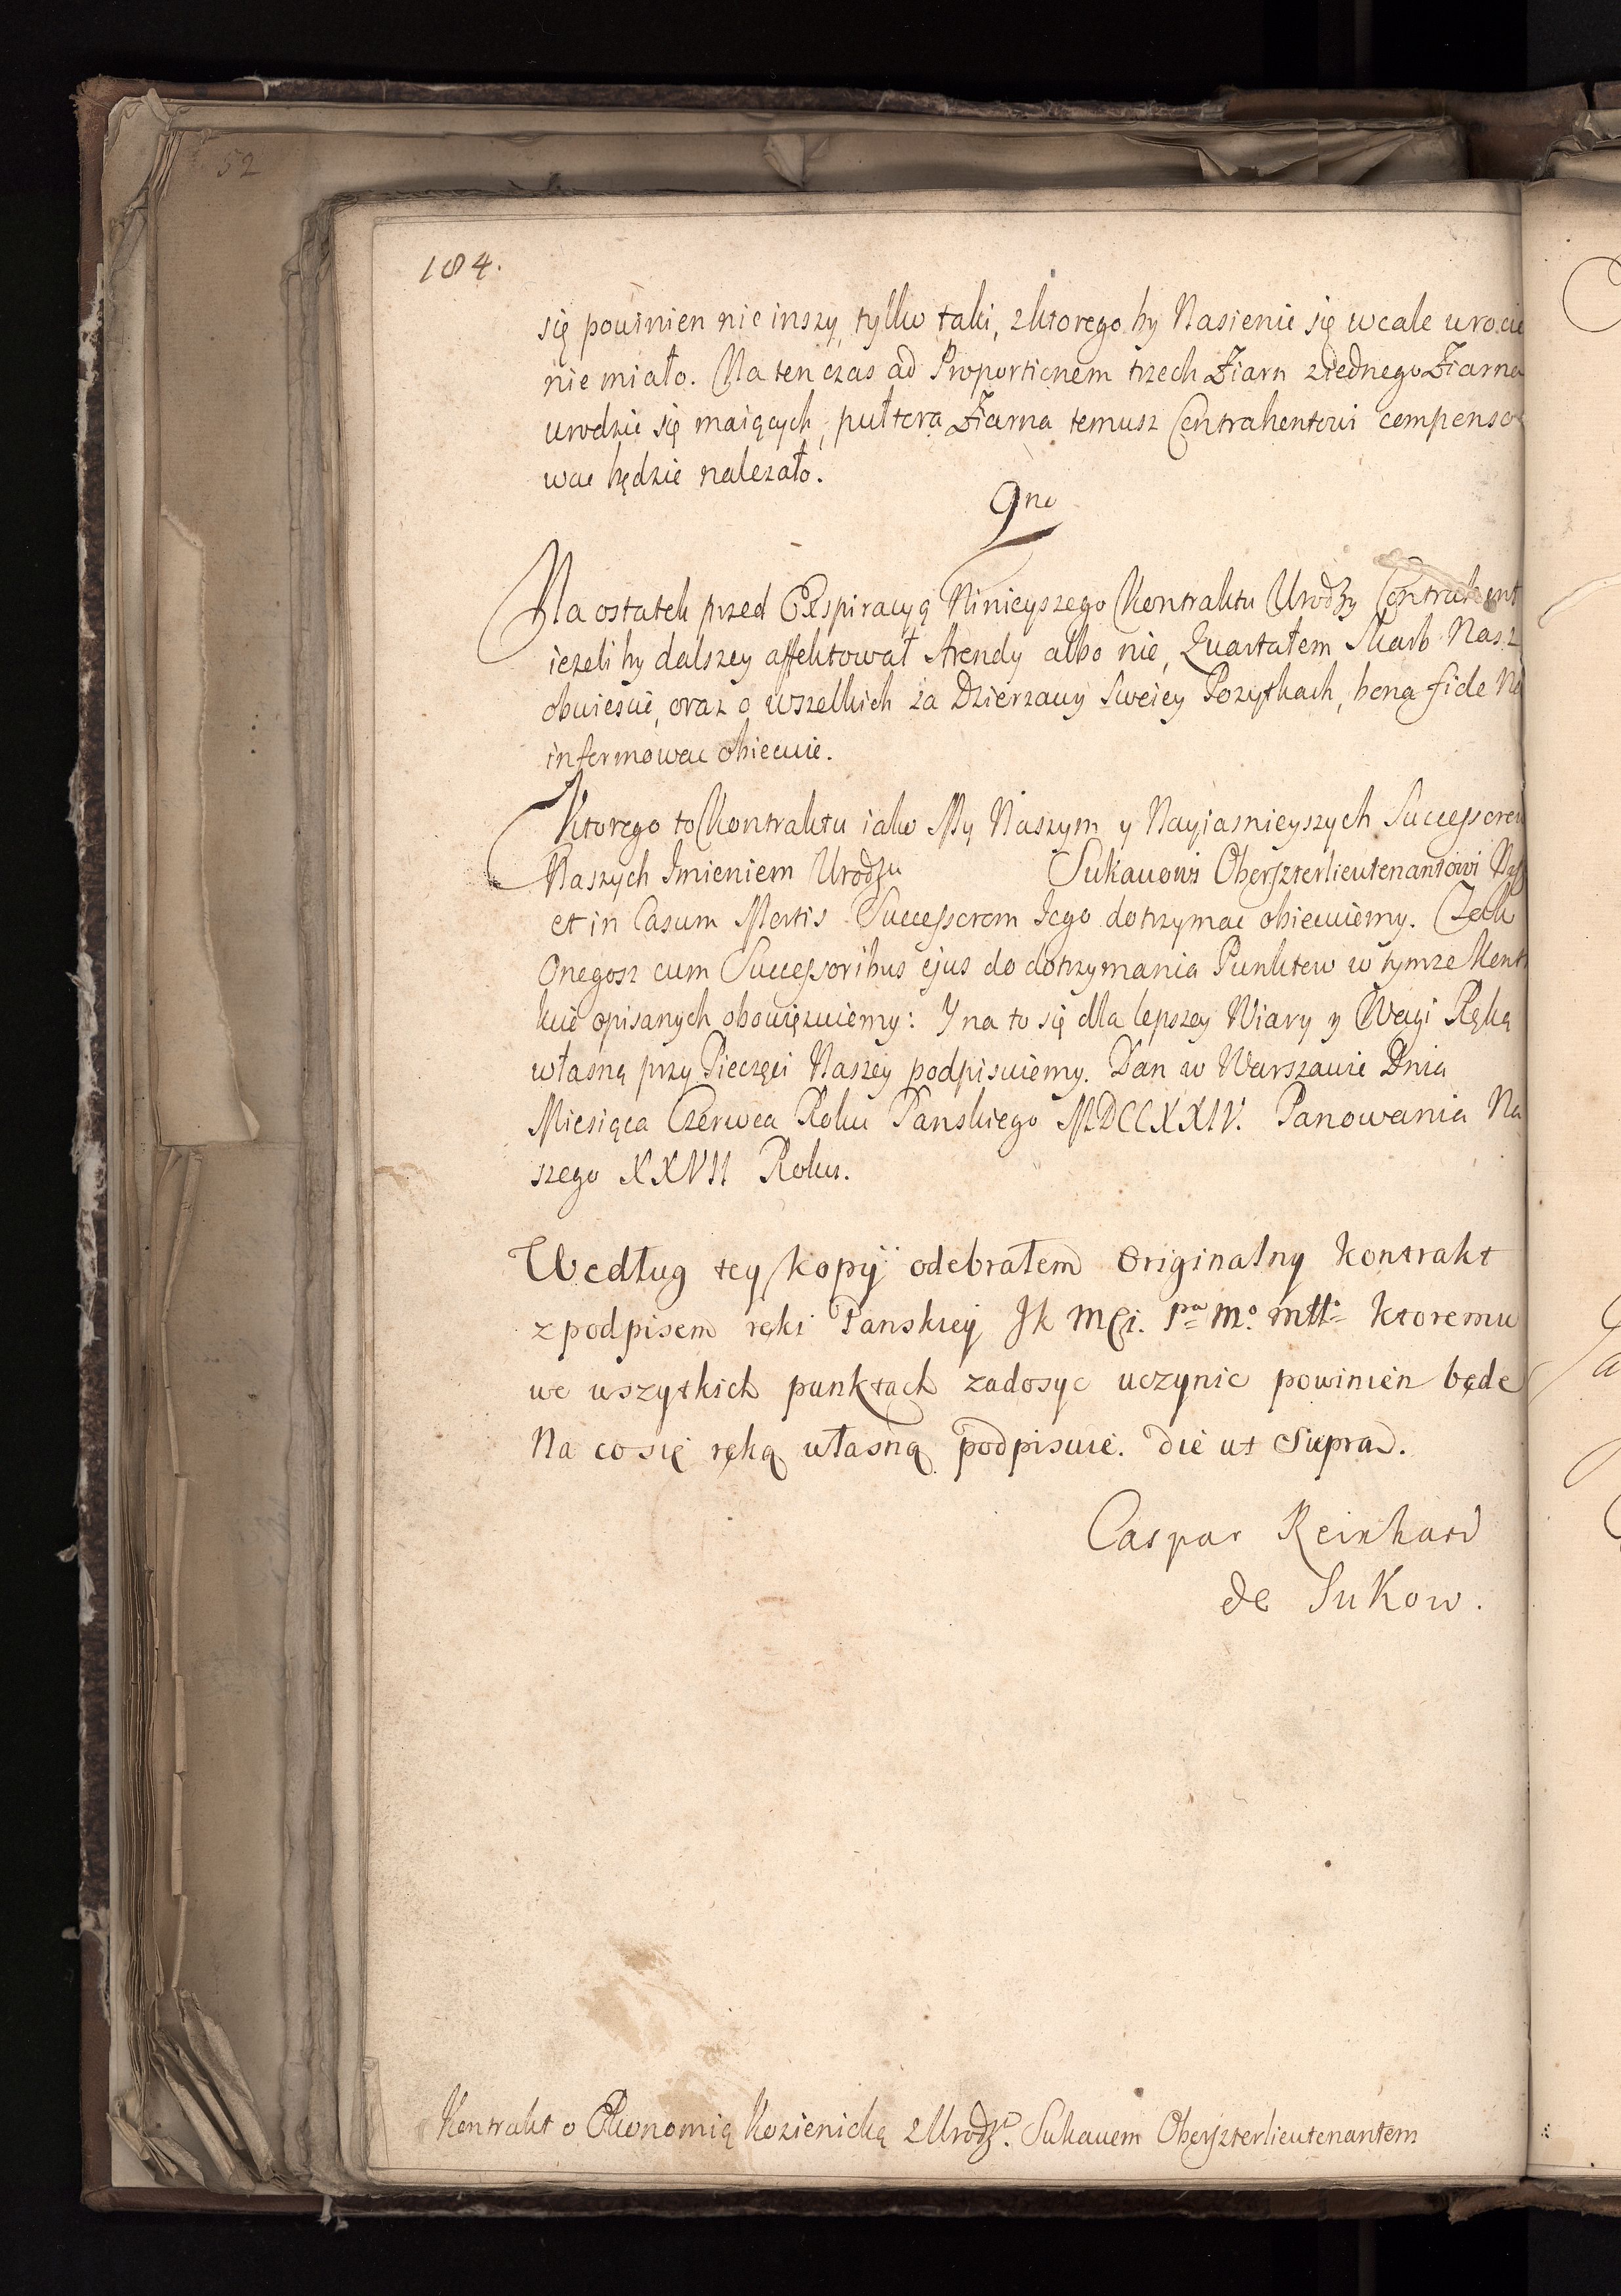 52
184.
się powinien nie inszy, tylko taki, z ktorego by Nasienie się wcale urocic
nie miało. Na ten czas ad Proportionem trzech Ziarn z iednego Ziarna
urodzic się maiących, pułtora Ziarna temusz Contrahentowi compenso-
wac będzie nalezało.
9no
Na ostatek przed Exspiracyą Ninieyszego Kontraktu Urodzy Contrahent
iezeli by dalszey affektował Arendy albo nie, Quartałem Skarb Nasz
obwiescic, oraz o wszelkich za Dzierzawy Swoiey Pozytkach, bona fide
informowac obiecuie.
Ktorego to Kontraktu iako My Naszym y Nayiasnieyszych Successorow
Naszych Imieniem Urodzu Sukauowi Oberszterlieutenantowi
et in Casum Mortis Successorom Iego dotrzymac obiecuiemy. Jako
Onegosz cum Successoribus ejus do dotrzymania Punktow w tymze Kontr
kcie opisanych obowięzuiemy: Y na to się dla lepszey Wiary y Wagi Ręką
własną przy Pieczęci Naszey podpisuiemy. Dan w Warszawie Dnia
Miesiąca Czerwca Roku Panskiego MDCCXXIV. Panowania Na
szego XXVII Roku.
Według tey kopÿ odebrałem Originalny kontrakt
z podpisem ręki Panskiey Jk Mći. Pa Mo. mtto ktoremu
we wszytkich punktach zadosyc uczynic powinien będe
Na co się ręką własną podpisuie. die ut Supra.
Caspar Reinhard
de SuKow.
Kontrakt o Ekonomią Kozienicką z Urodz. Sukauem Oberszterlieutenantem